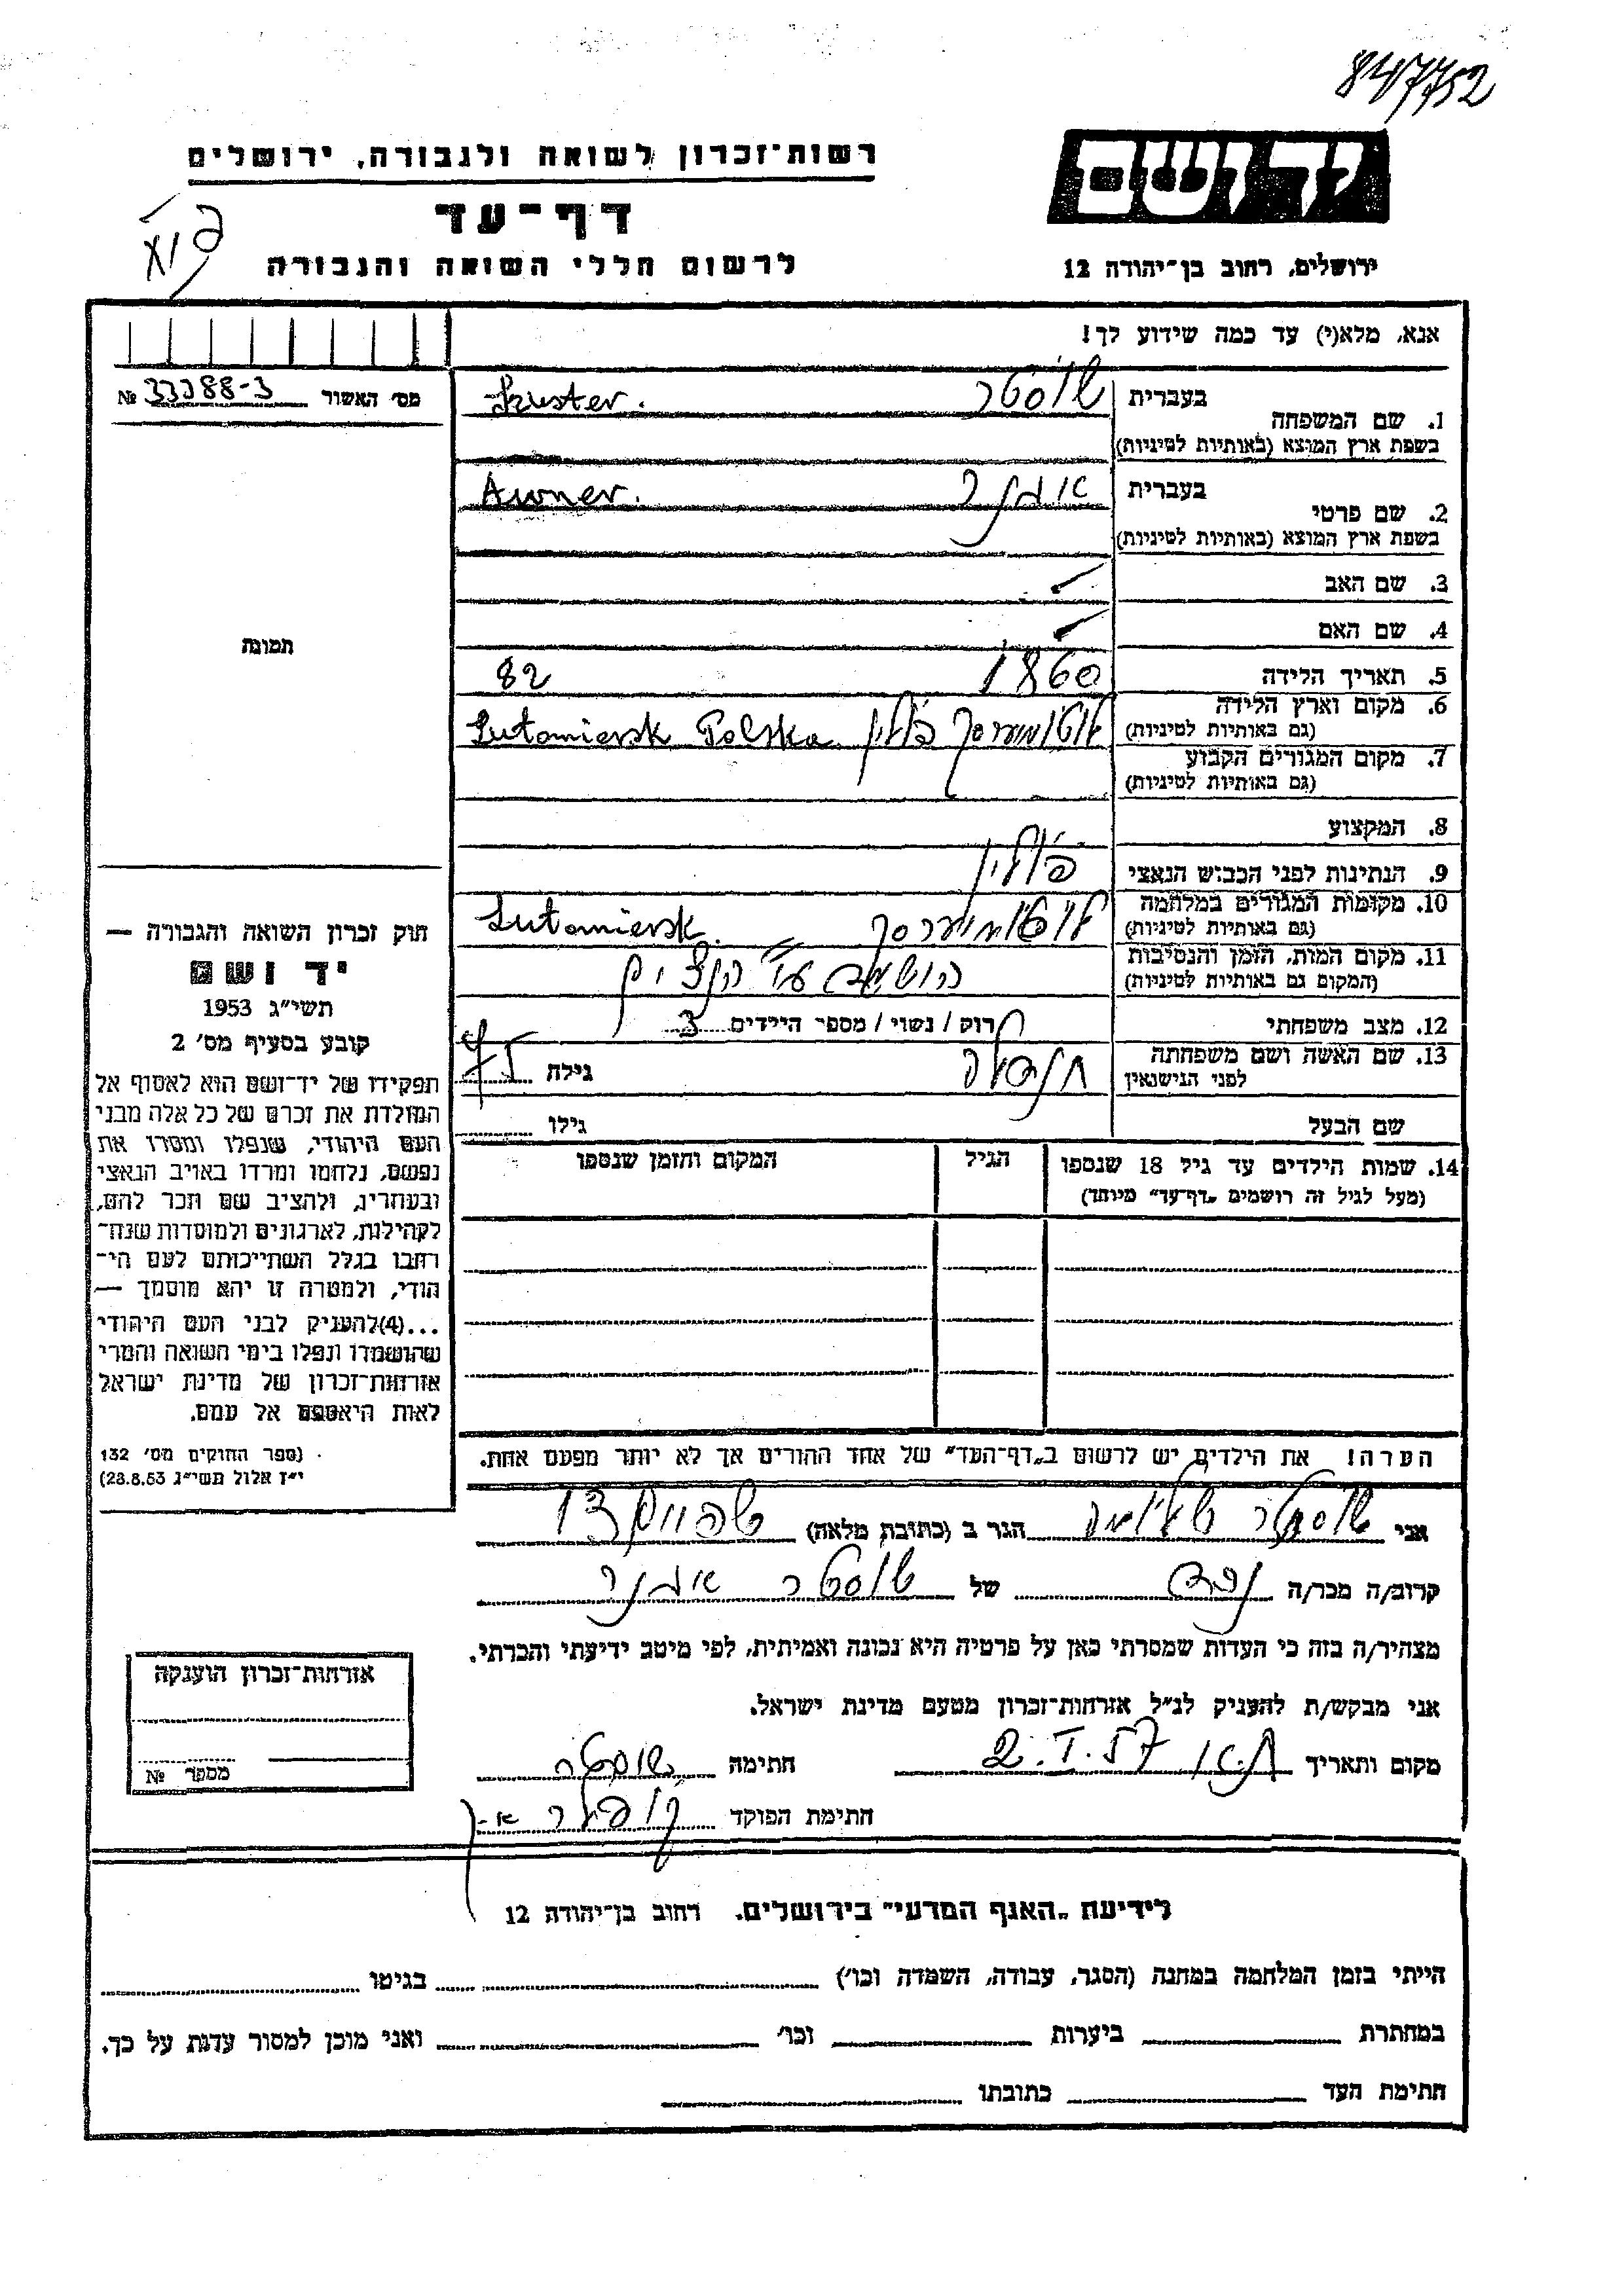 847752
יד ושם
רשות־זכרון לשואה ולגבורה, ירושלים
דף־עד
לרשום חללי השואה והגבורה
ירושלים, רחוב בן־יהודה 12
אנא, מלא(י) עד כמה שידוע לך!
מס׳ האשור 33388-3 №
1. שם המשפחה
בעברית שוסטר Szuster.
בשפת ארץ המוצא (באותיות לטיניות)
2. שם פרטי
בעברית אבנר Awner.
בשפת ארץ המוצא (באותיות לטיניות)
3. שם האב
4. שם האם
5. תאריך הלידה 1860 82
6. מקום וארץ הלידה
(גם באותיות לטיניות) לוטומירסק פולין Lutomiersk Polska
7. מקום המגורים הקבוע
(גם באותיות לטיניות)
8. המקצוע
9. הנתינות לפני הכבוש הנאצי פולין
10. מקומות המגורים במלחמה
(גם באותיות לטיניות) Lutomiersk.
11. מקום המות, הזמן והנסיבות
(המקום גם באותיות לטיניות) הושמד ע״י הנצים
12. מצב משפחתי רוק / נשוי / מספר הילדים 3
13. שם האשה ושם משפחתה
לפני הנישואין גילה 75
שם הבעל גילו
14. שמות הילדים עד גיל 18 שנספו
(מעל לגיל זה רושמים „דף־עד״ מיוחד)
הגיל
המקום והזמן שנספו
הערה! את הילדים יש לרשום ב„דף־העד״ של אחד ההורים אך לא יותר מפעם אחת.
תמונה
חוק זכרון השואה והגבורה —
יד ושם
תשי״ג 1953
קובע בסעיף מס׳ 2
תפקידו של יד־ושם הוא לאסוף אל
המולדת את זכרם של כל אלה מבני
העם היהודי, שנפלו ומסרו את
נפשם, נלחמו ומרדו באויב הנאצי
ובעוזריו, ולהציב שם וזכר להם,
לקהילות, לארגונים ולמוסדות שנח־
רחבו בגלל השתייכותם לעם הי־
הודי, ולמטרה זו יהא מוסמך —
...(4)להעניק לבני העם היהודי
שהושמדו ונפלו בימי השואה והמרי
אזרחות־זכרון של מדינת ישראל
לאות היאספם אל עמם.
(ספר החוקים מס׳ 132
י״ז אלול תשי״ג 28.8.53)
אני שוסטר שלמה הגר ב (כתובת מלאה)
קרוב/ה מכר/ה נכד של שוסטר אבנר
מצהיר/ה בזה כי העדות שמסרתי כאן על פרטיה היא נכונה ואמיתית, לפי מיטב ידיעתי והכרתי.
אני מבקש/ת להעניק לנ״ל אזרחות־זכרון מטעם מדינת ישראל.
מקום ותאריך 2.I.57 חתימה שוסטר
חתימת הפוקד
אזרחות־זכרון הוענקה
מספר №
לידיעת „האגף המדעי״ בירושלים. רחוב בן־יהודה 12
הייתי בזמן המלחמה במחנה (הסגר, עבודה, השמדה וכו׳) בגיטו
במחתרת ביערות וכו׳ ואני מוכן למסור עדות על כך.
חתימת העד כתובתו